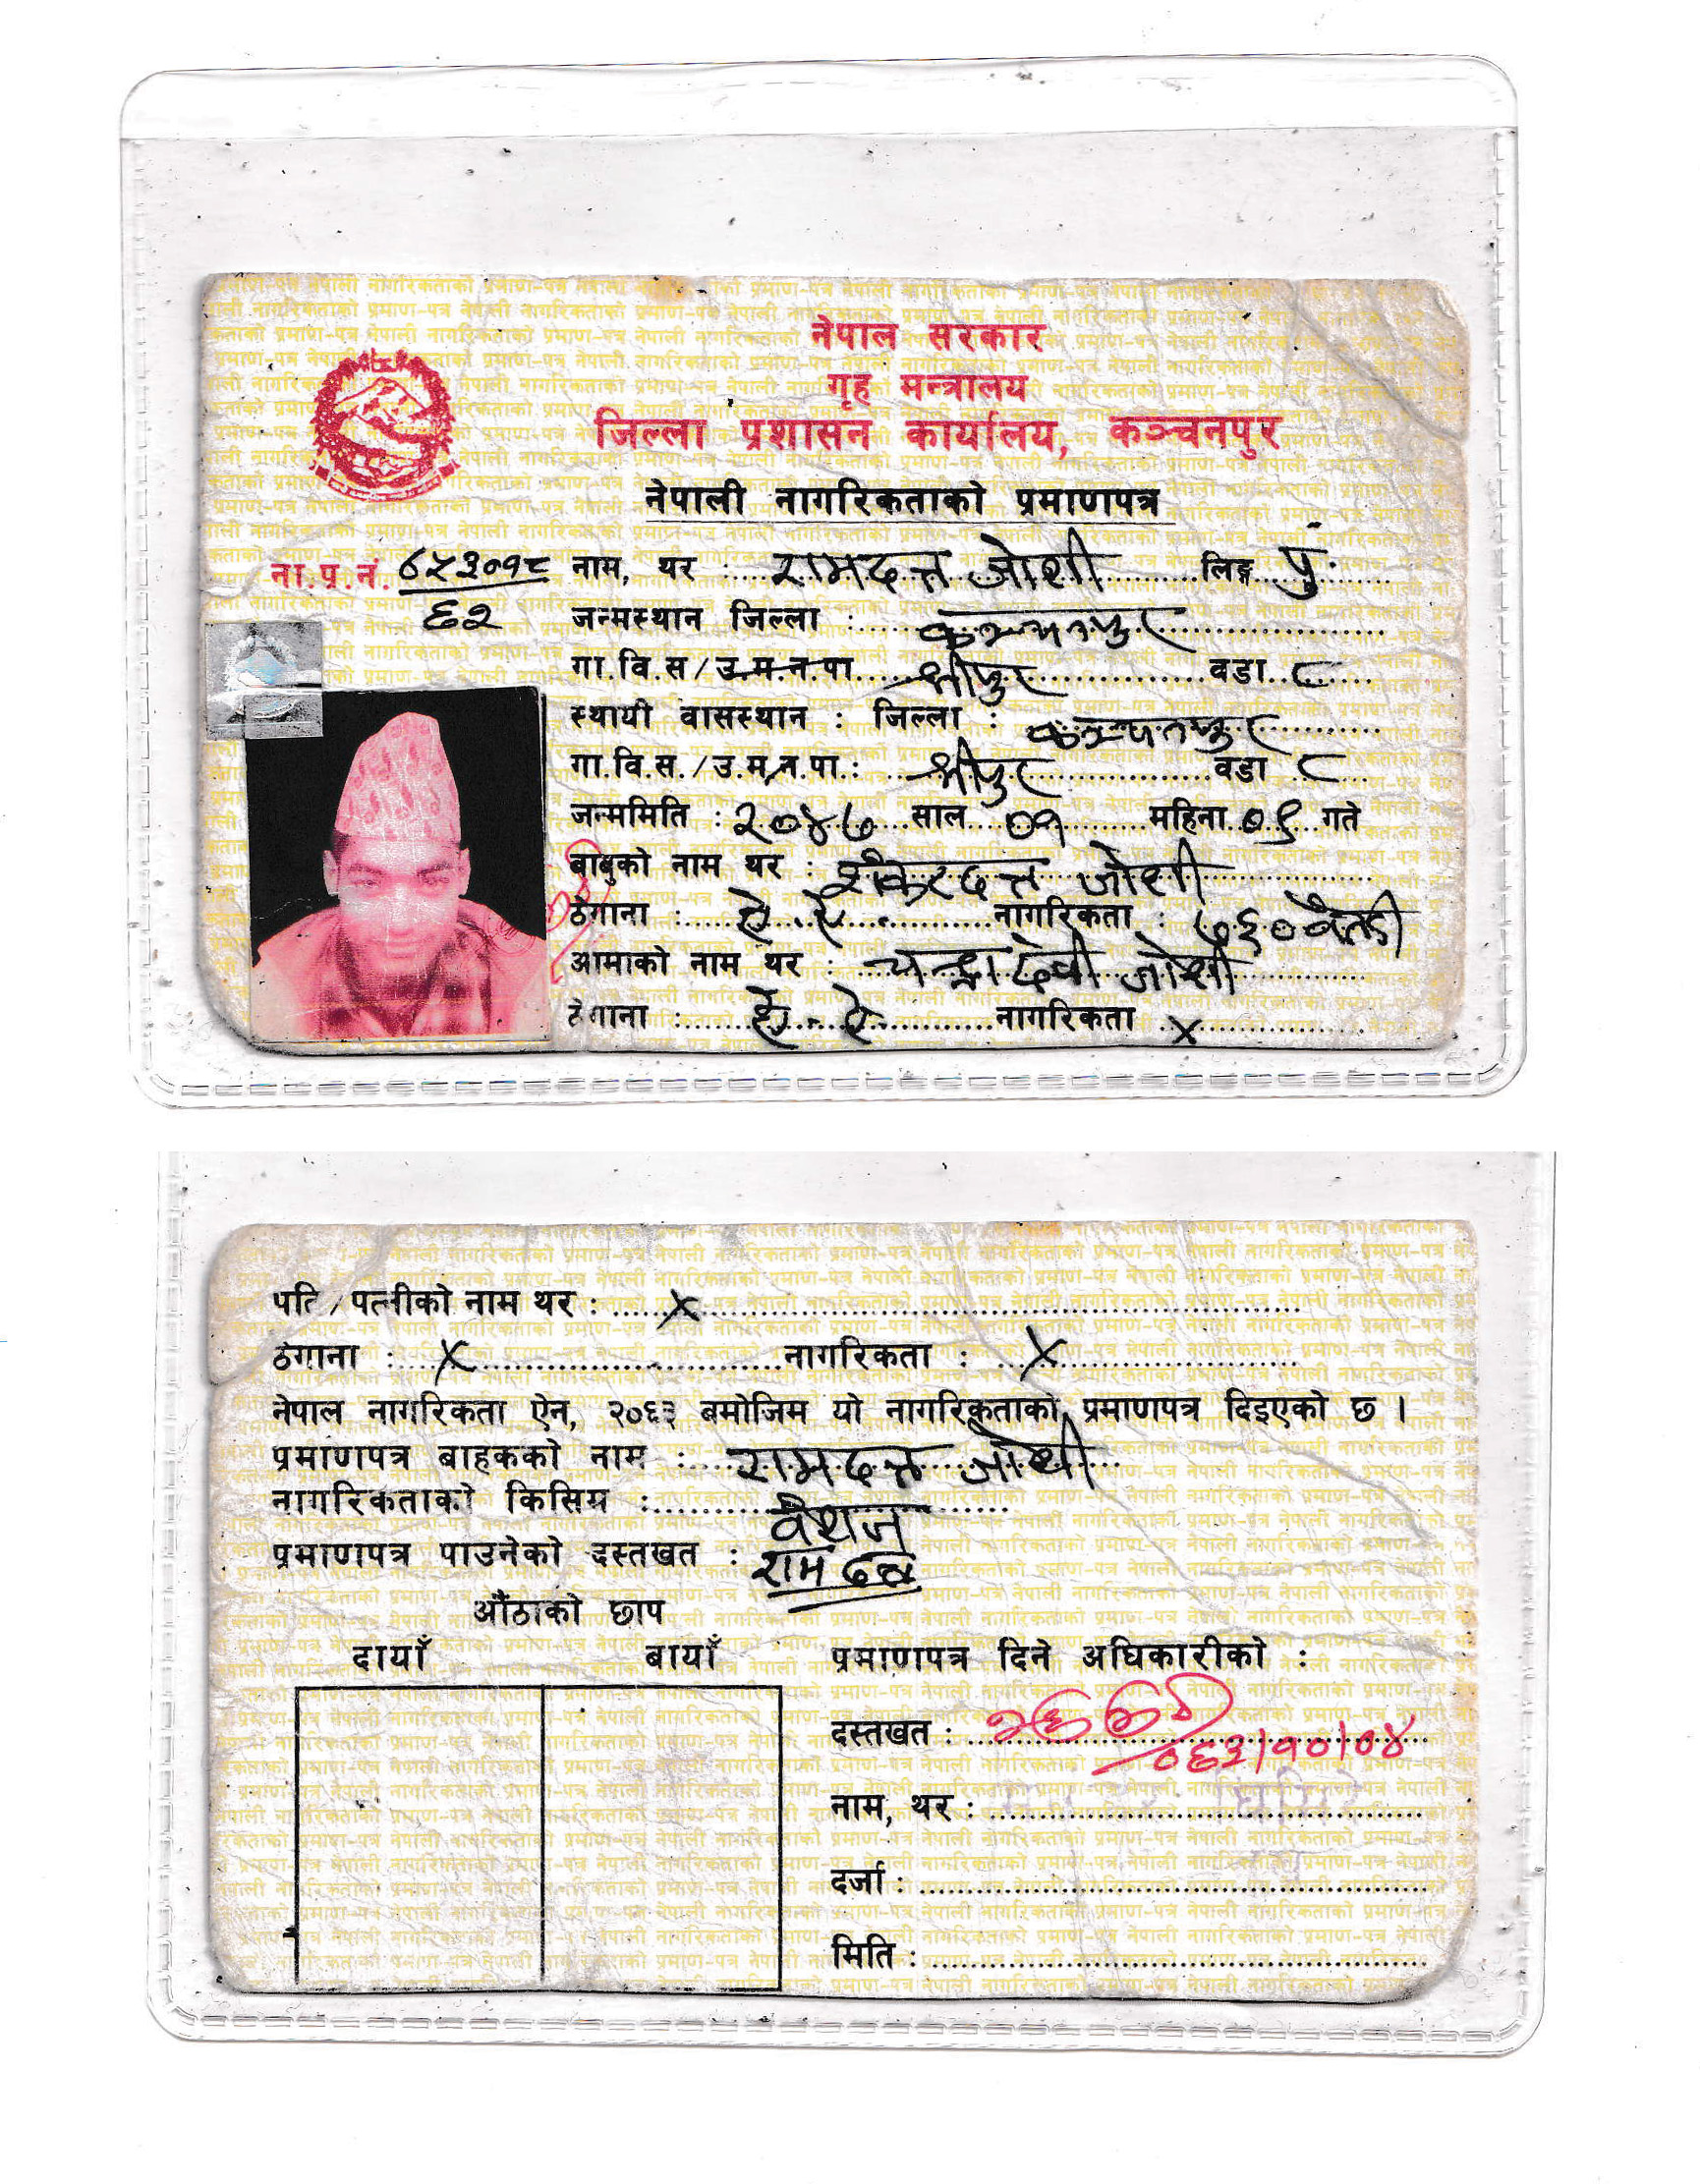 नेपाल सरकार
गृह मन्त्रालय
जिल्ला प्रशासन कार्यालय, कञ्चनपुर
नेपाली नागरिकताको प्रमाणपत्र
ना.प्र.नं. ८५३०१८/६२ नाम, थर : रामदत्त जोशी लिङ्ग पु.
जन्मस्थान जिल्ला : कञ्चनपुर
गा.वि.स/उ.म.न.पा. श्रीपुर वडा ८
स्थायी वासस्थान : जिल्ला : कञ्चनपुर
गा.वि.स./उ.म.न.पा : श्रीपुर वडा ८
जन्ममिति : २०४७ साल ०१ महिना ०९ गते
बाबुको नाम थर : शंकरदत्त जोशी
ठेगाना : ऐ. ऐ. नागरिकता : ७६० बैतडी
आमाको नाम थर : चन्द्रादेवी जोशी
ठेगाना : ऐ. ऐ. नागरिकता x
पति/पत्नीको नाम थर : x
ठेगाना : x नागरिकता : x
नेपाल नागरिकता ऐन, २०६३ बमोजिम यो नागरिकताको प्रमाणपत्र दिइएको छ ।
प्रमाणपत्र बाहकको नाम : रामदत्त जोशी
नागरिकताको किसिम : वंशज
प्रमाणपत्र पाउनेको दस्तखत : रामदत्त
औंठाको छाप
दायाँ बायाँ
प्रमाणपत्र दिने अधिकारीको :
दस्तखत : ०६३/१०/०४
नाम, थर :
दर्जा :
मिति :